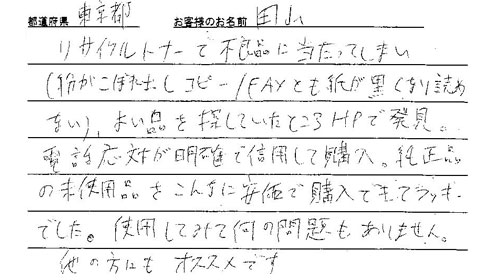 都道府県 東京都 お客様のお名前 田山
リサイクルトナーで不良品に当たってしまい
(粉がこぼれ出しコピー/FAXとも紙が黒くなり読め
ない)、よい品を探していたところHPで発見。
電話応対が明確で信用して購入。純正品
の未使用品をこんなに安価で購入できてラッキー
でした。使用してみて何の問題もありません。
他の方にもオススメです